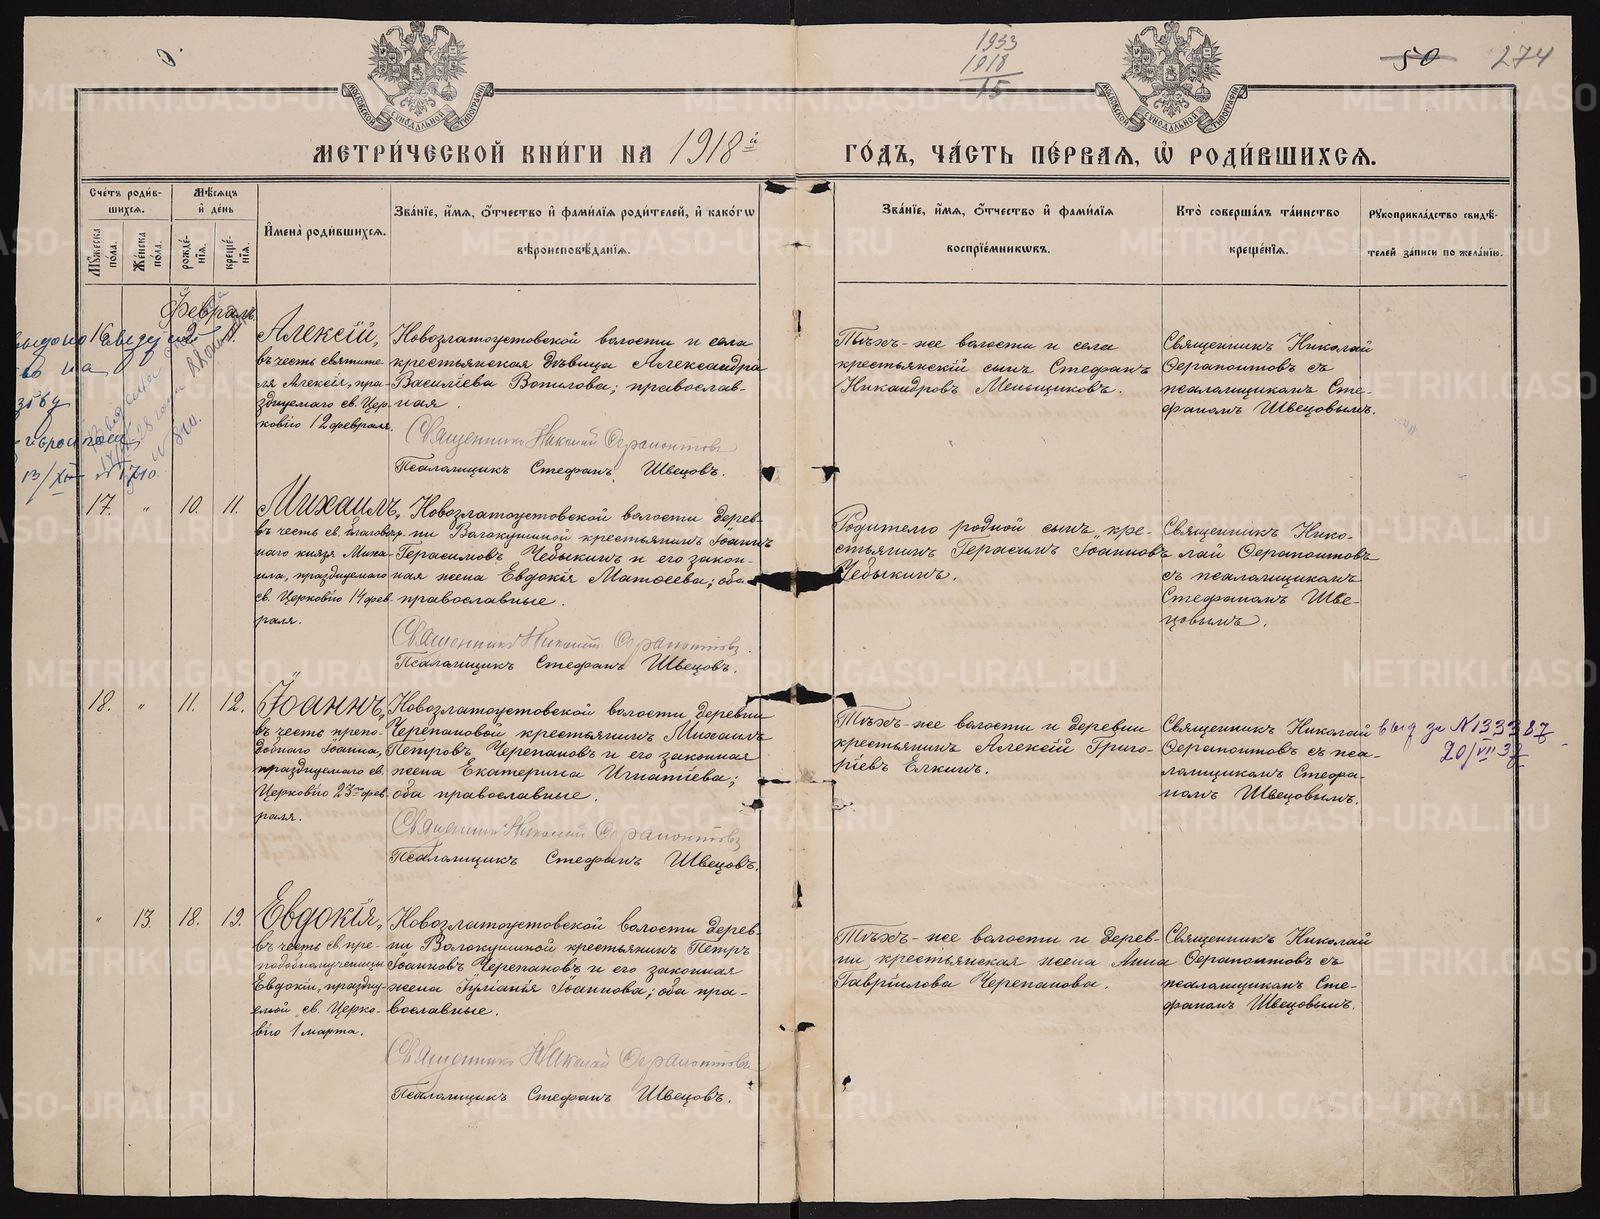 1933
1918
15
50 274
МЕТРИ́ЧЕСКОЙ КНИ́ГИ НА 1918й ГО́ДЪ, ЧА́СТЬ ПЕ́РВАЯ, Ѡ҆ РОДИ́ВШИХСЯ.
Сче́тъ роди́в-
шихся.
Мꙋ́жеска по́ла.
Же́нска по́ла.
Мѣ́сяцъ
и҆ де́нь
рожде́-
нїѧ.
креще́-
нїѧ.
И҆мена̀ роди́вшихся.
Зва́нїе, и҆́мя, ѻ҆́тчество и҆ фами́лїя роди́телей, и҆ како́гѡ
вѣроисповѣ́данїя.
Зва́нїе, и҆́мя, ѻ҆́тчество и҆ фами́лїя
воспрїе́мникѡвъ.
Кто̀ соверша́лъ та́инство
креще́нїя.
Рꙋкоприкла́дство свидѣ́-
телей за́писи по жела́нїю.
Февраль
16 11.
Алексій,
въ честь святите-
ля Алексія, пра-
зднуемаго св. Цер-
ковію 12 февраля.
Новозлатоустовской волости и села
крестьянская дѣвица Александра
Василіева Вотилова; православ-
ная.
Священникъ Николай Ѳерапонтовъ
Псаломщикъ Стефанъ Швецовъ.
Тѣхъ-же волости и села
крестьянскій сынъ Стефанъ
Никандровъ Меньщиковъ.
Священникъ Николай
Ѳерапонтовъ съ
псаломщикомъ Сте-
фаномъ Швецовымъ.
13/XII № 1710.
17. " 10. 11.
Михаилъ,
въ честь св. благовѣр-
наго князя Миха-
ила, празднуемаго
св. Церковію 14 фев-
раля.
Новозлатоустовской волости дерев-
ни Волокушиной крестьянинъ Іоаннъ
Герасимовъ Чебыкинъ и его закон-
ная жена Евдокія Матѳеева; оба
православные.
Священникъ Николай Ѳерапонтовъ.
Псаломщикъ Стефанъ Швецовъ.
Родителю родной сынъ, кре-
стьянинъ Герасимъ Іоанновъ
Чебыкинъ.
Священникъ Нико-
лай Ѳерапонтовъ
съ псаломщикомъ
Стефаномъ Шве-
цовымъ.
18. " 11. 12.
Іоаннъ,
въ честь препо-
добнаго Іоанна,
празднуемаго св.
Церковію 23го фев-
раля.
Новозлатоустовской волости деревни
Черепановой крестьянинъ Михаилъ
Петровъ Черепановъ и его законная
жена Екатерина Игнатіева;
оба православные.
Священникъ Николай Ѳерапонтовъ
Псаломщикъ Стефанъ Швецовъ.
Тѣхъ-же волости и деревни
крестьянинъ Алексій Григо-
ріевъ Елкинъ.
Священникъ Николай
Ѳерапонтовъ съ пса-
ломщикомъ Стефа-
номъ Швецовымъ.
выд за №
20/VII 37
" 13. 18. 19.
Евдокія,
въ честь св. пре-
подобномученицы
Евдокіи, праздну-
емой св. Церко-
вію 1 марта.
Новозлатоустовской волости дерев-
ни Волокушиной крестьянинъ Петръ
Іоанновъ Черепановъ и его законная
жена Іуліанія Іоаннова; оба пра-
вославные.
Священникъ Николай Ѳерапонтовъ
Псаломщикъ Стефанъ Швецовъ.
Тѣхъ-же волости и дерев-
ни крестьянская жена Анна
Гавріилова Черепанова.
Священникъ Николай
Ѳерапонтовъ съ
псаломщикомъ Сте-
фаномъ Швецовымъ.
METRIKI.GASO-URAL.RU